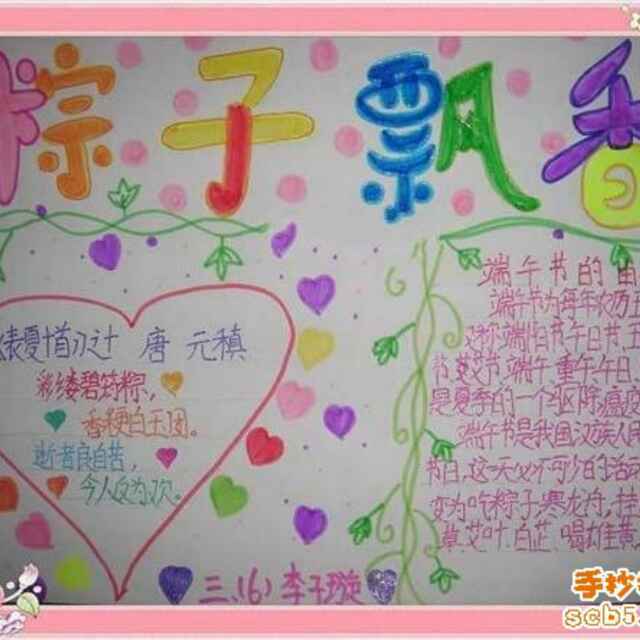 粽子飘香
表夏十首夕计 唐 元稹
彩缕碧筠粽，
香粳白玉团。
逝者良自苦，
今人反为欢。
三、(6) 李子璇
端午节的由
端午节为每年农历五
又称端阳节午日节五
节艾节端午重午午日
是夏季的一个驱除瘟疫
端午节是我国汉族人民
节日，这一天必不可少的活动
变为吃粽子，赛龙舟，挂
草、艾叶、白芷、喝雄黄
手抄
scb5.